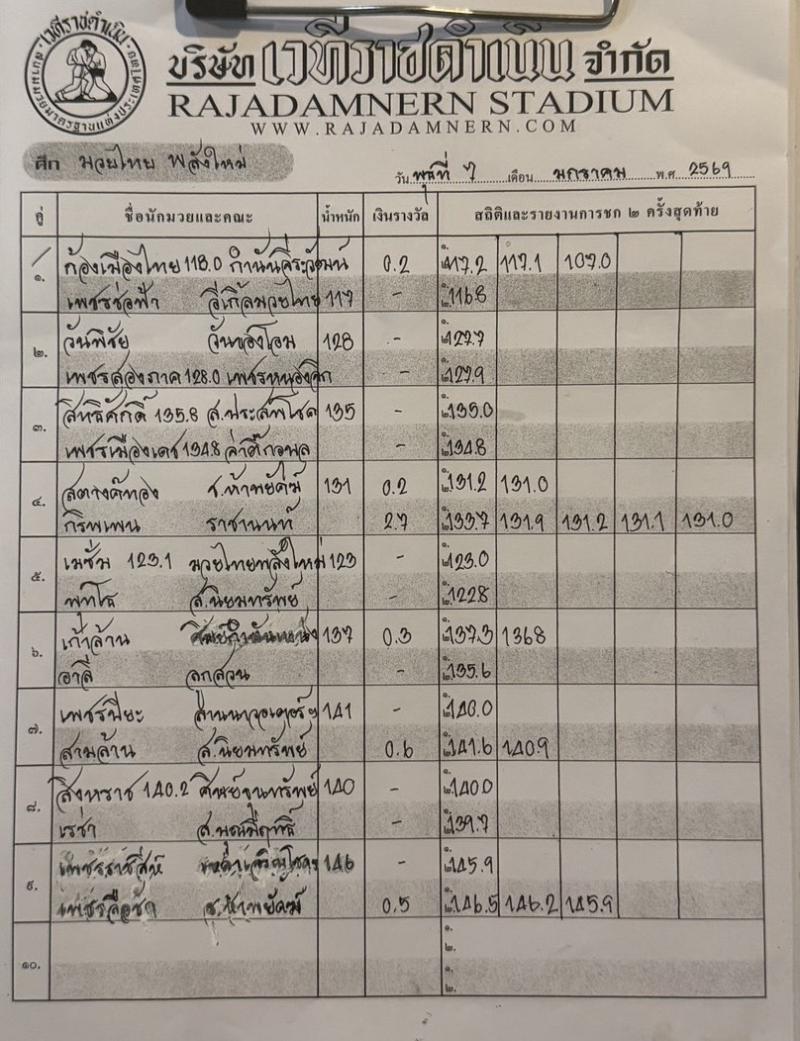 เวทีราชดำเนิน
บริษัท เวทีราชดำเนิน จำกัด
RAJADAMNERN STADIUM
WWW.RAJADAMNERN.COM
ศึก มวยไทย พลังใหม่
วัน พุธที่ 7 เดือน มกราคม พ.ศ. 2569
คู่ ชื่อนักมวยและคณะ น้ำหนัก เงินรางวัล สถิติและรายงานการชก ๒ ครั้งสุดท้าย
๑. ก้องเมืองไทย 118.0 0.2 ๑. 117.2 117.1 107.0
เพชรช่อฟ้า อีเกิ้ลมวยไทย 117 - ๒. 116.8
๒. วันพิชัย วันทองโอม 128 - ๑. 127.7
เพชรสองภาค 128.0 - ๒. 127.9
๓. สิทธิศักดิ์ 135.8 ส.ประสพโชค 135 - ๑. 135.0
เพชรเมืองเดช 134.8 - ๒. 134.8
๔. สตางค์ทอง ช.ห้าพยัคฆ์ 131 0.2 ๑. 131.2 131.0
ราชานนท์ 2.7 ๒. 133.7 131.9 131.2 131.1 131.0
๕. 123.1 มวยไทยพลังใหม่ 123 - ๑. 123.0
ส.นิยมทรัพย์ - ๒. 122.8
๖. เก้าล้าน 137 0.3 ๑. 137.3 136.8
อาลี ลูกสวน - ๒. 135.6
๗. 141 - ๑. 140.0
สามล้าน ส.นิยมทรัพย์ 0.6 ๒. 141.6 140.9
๘. สิงหราช 140.2 140 - ๑. 140.0
เรซ่า - ๒. 139.7
๙. เพชรราชสีห์ 146 - ๑. 145.9
เพชรลือชัด ช.ห้าพยัคฆ์ 0.5 ๒. 146.5 146.2 145.9
๑๐. ๑.
๒.
๑.
๒.